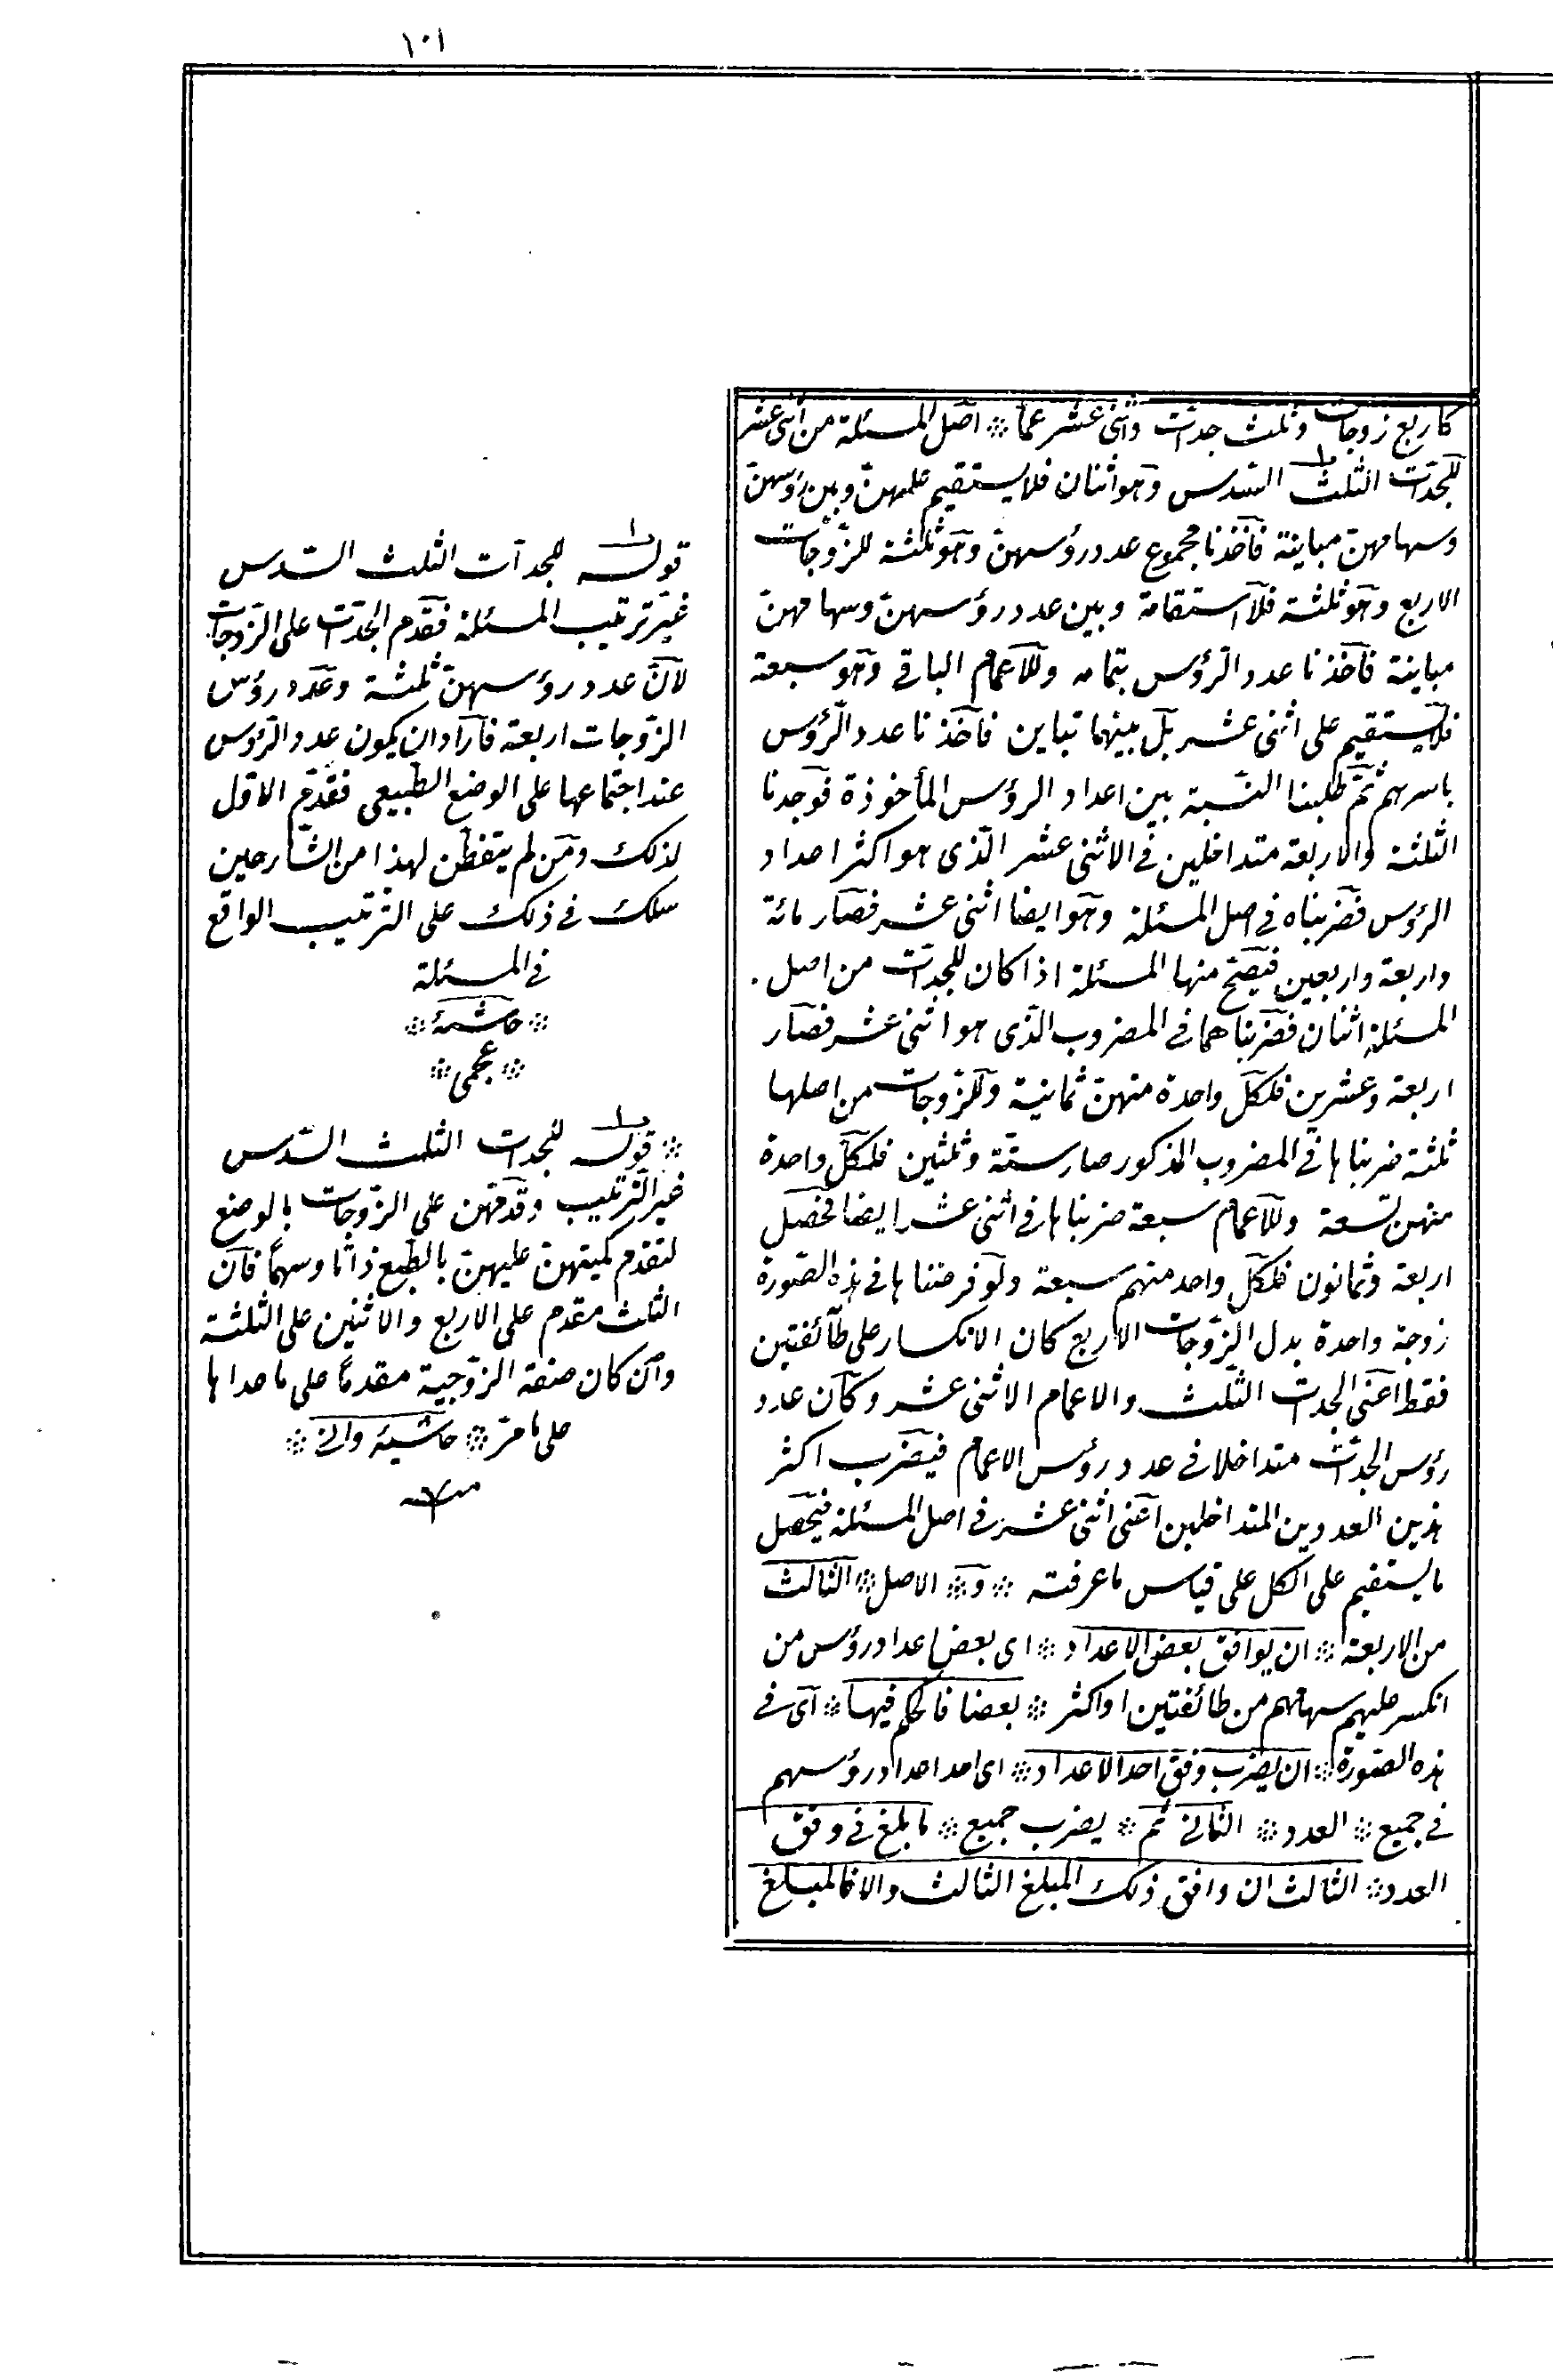 ١٠١
كاربع زوجات وثلث جدات واثنى عشر عما ⁘ اصل المسئلة من اثنى عشر
للجدات الثلث السدس وهو اثنان فلا يستقيم عليهن وبين رؤسهن
وسهامهن مباينة فاخذنا مجموع عدد رؤسهن وهو ثلثة للزوجات
الاربع وهو ثلثة فلا استقامة وبين عدد رؤسهن وسهامهن
مباينة فاخذنا عدد الرؤس بتمامه وللاعمام الباقى وهو سبعة
فلا يستقيم على اثنى عشر بل بينهما تباين فاخذنا عدد الرؤس
باسرهم ثم طلبنا النسبة بين اعداد الرؤس المأخوذة فوجدنا
الثلثة والاربعة متداخلين فى الاثنى عشر الذى هو اكثر اعداد
الرؤس فضربناه فى اصل المسئلة وهو ايضا اثنى عشر فصار مائة
واربعة واربعين فيصح منها المسئلة اذا كان للجدات من اصل
المسئلة اثنان فضربناهما فى المضروب الذى هو اثنى عشر فصار
اربعة وعشرين فلكل واحدة منهن ثمانية وللزوجات من اصلها
ثلثة ضربناها فى المضروب المذكور صار ستة وثلثين فلكل واحدة
منهن تسعة وللاعمام سبعة ضربناها فى اثنى عشر ايضا فحصل
اربعة وثمانون فلكل واحد منهم سبعة ولو فرضنا ها فى هذه الصورة
زوجة واحدة بدل الزوجات الاربع كان الانكسار على طائفتين
فقط اعنى الجدات الثلث والاعمام الاثنى عشر وكان عدد
رؤس الجدات متداخلا فى عدد رؤس الاعمام فيضرب اكثر
هذين العددين المتداخلين اعنى اثنى عشر فى اصل المسئلة فيحصل
ما يستقيم على الكل على قياس ما عرفته ⁘ و ⁘ الاصل ⁘ الثالث
من الاربعة ⁘ ان يوافق بعض الاعداد ⁘ اى بعض اعداد رؤس من
انكسر عليهم سهامهم من طائفتين او اكثر ⁘ بعضا فالحكم فيها ⁘ اى فى
هذه الصورة ⁘ ان يضرب وفق احد الاعداد ⁘ اى احد اعداد رؤسهم
فى جميع ⁘ العدد ⁘ الثانى ثم ⁘ يضرب جميع ⁘ ما بلغ فى وفق
العدد ⁘ الثالث ان وافق ذلك المبلغ الثالث والا فالمبلغ
١
قوله للجدات الثلث السدس
غير ترتيب المسئلة فقدم الجدات على الزوجات
لان عدد رؤسهن ثلثة وعدد رؤس
الزوجات اربعة فاراد ان يكون عدد الرؤس
عند اجتماعها على الوضع الطبيعى فقدم الاقل
لذلك ومن لم يتفطن لهذا من الشارحين
سلك فى ذلك على الترتيب الواقع
فى المسئلة
⁘ حاشية ⁘
⁘ عجمى ⁘
١
⁘ قوله للجدات الثلث السدس
غير الترتيب وقدمهن على الزوجات بالوضع
لتقدم كميتهن عليهن بالطبع ذاتا وسهما فان
الثلث مقدم على الاربع والاثنين على الثلثة
وان كان صنفة الزوجية مقدما على ماعداها
على ما مر ⁘ حاشية ⁘